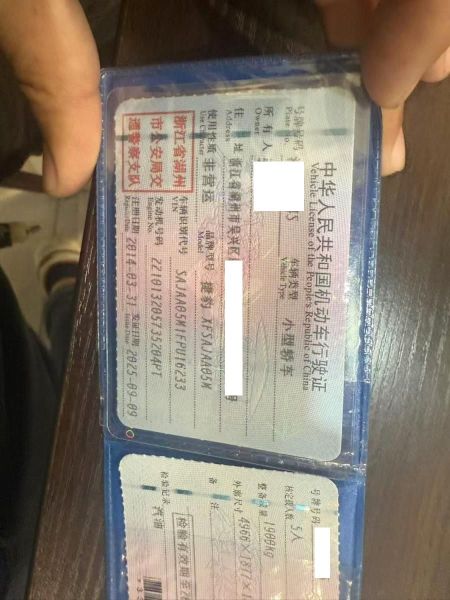 中华人民共和国机动车行驶证
Vehicle License of the People's Republic of China
号牌号码
Plate No.
车辆类型 小型轿车
Vehicle Type
所有人
Owner
住址 浙江省湖州市吴兴区
Address
号
使用性质 非营运
Use Character
品牌型号 捷豹 XFSAJAA05M
Model
浙江省湖州
市公安局交
通警察支队
车辆识别代号 SAJAA05M1FPU16233
VIN
发动机号码 221013205735204PT
Engine No.
注册日期 2014-03-31
Register Date
发证日期 2025-09-09
Issue Date
号牌号码
核定载人数 5人
整备质量 1900KG
外廓尺寸 4966×1877×1
备注
检验有效期至
检验记录 汽油